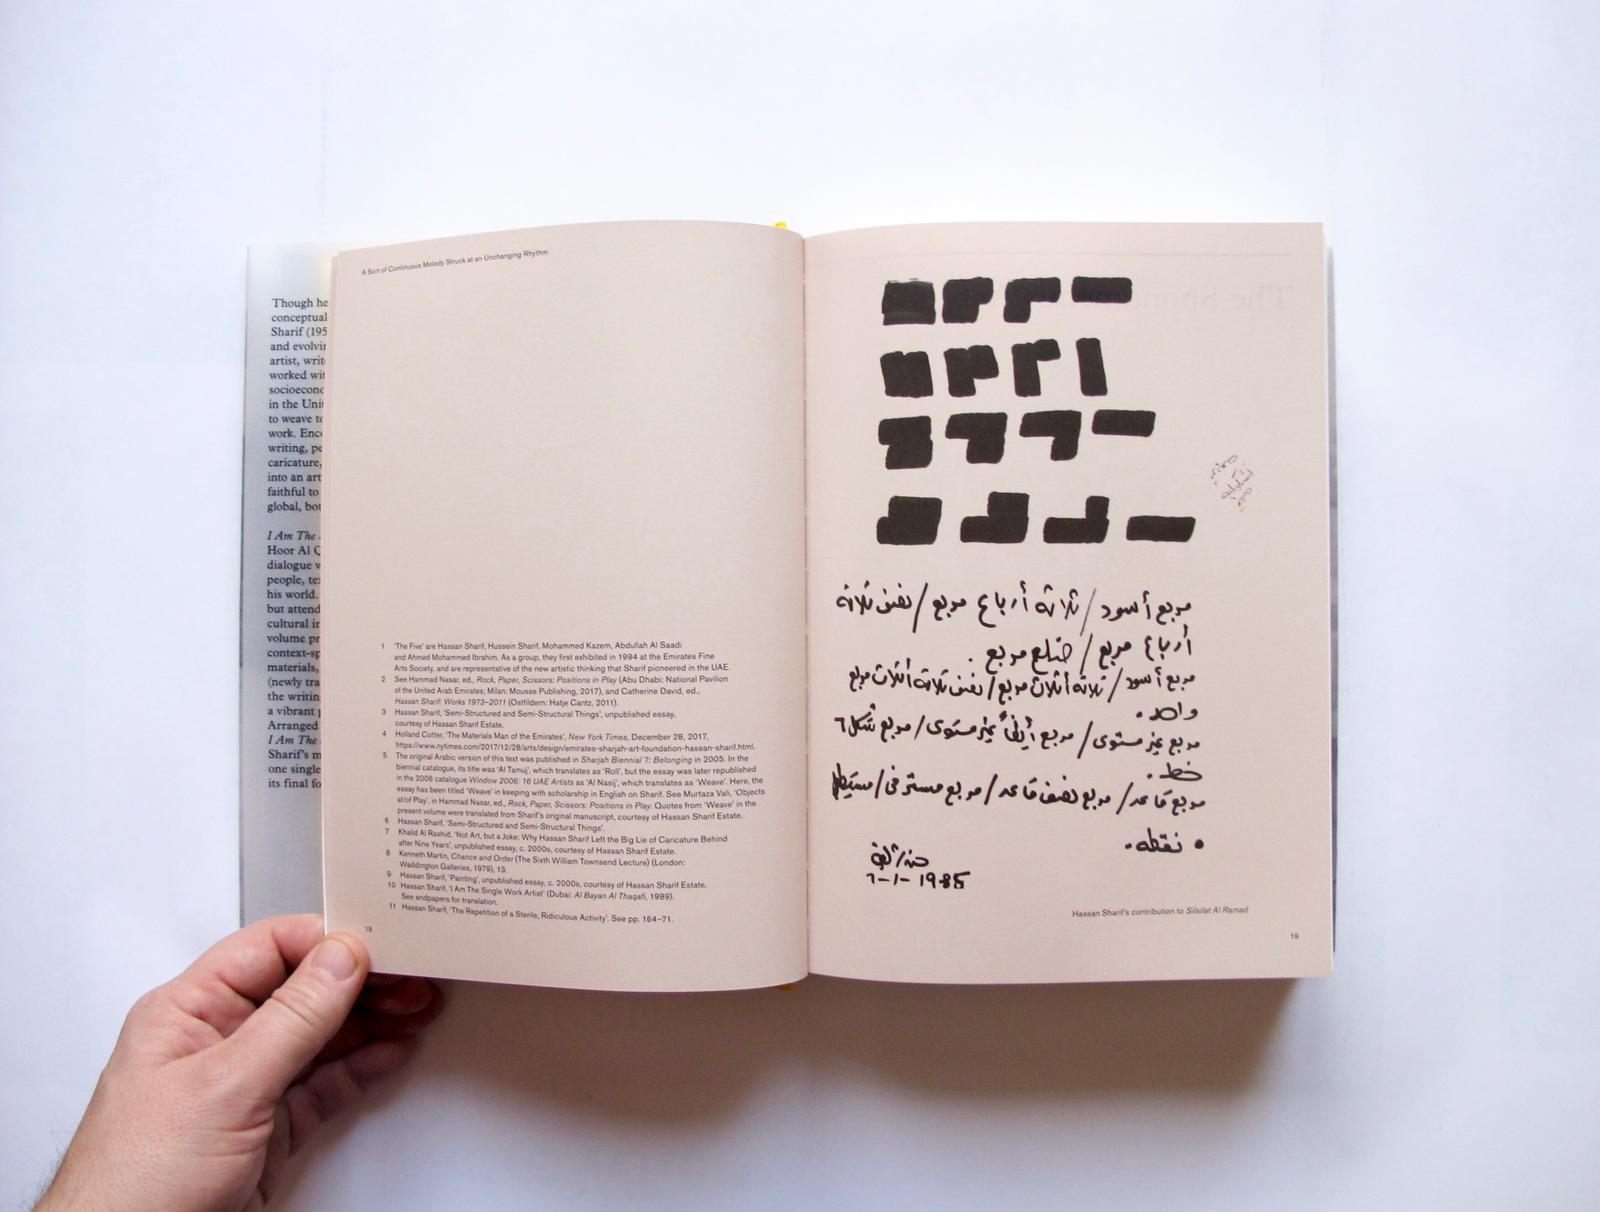 Though he
conceptual
Sharif (195
and evolvin
artist, write
worked wit
socioecono
in the Unit
to weave to
work. Enco
writing, pe
caricature,
into an art
faithful to
global, bot
I Am The
Hoor Al Q
dialogue w
people, tex
his world.
but attend
cultural in
volume pr
context-sp
materials,
(newly tra
the writin
a vibrant p
Arranged
I Am The
Sharif's m
one single
its final fo
A Sort of Continuous Melody Struck at an Unchanging Rhythm
1 'The Five' are Hassan Sharif, Hussein Sharif, Mohammed Kazem, Abdullah Al Saadi
and Ahmed Mohammed Ibrahim. As a group, they first exhibited in 1994 at the Emirates Fine
Arts Society, and are representative of the new artistic thinking that Sharif pioneered in the UAE.
2 See Hammad Nasar, ed., Rock, Paper, Scissors: Positions in Play (Abu Dhabi: National Pavilion
of the United Arab Emirates; Milan: Mousse Publishing, 2017), and Catherine David, ed.,
Hassan Sharif: Works 1973–2011 (Ostfildern: Hatje Cantz, 2011).
3 Hassan Sharif, 'Semi-Structured and Semi-Structural Things', unpublished essay,
courtesy of Hassan Sharif Estate.
4 Holland Cotter, 'The Materials Man of the Emirates', New York Times, December 28, 2017,
https://www.nytimes.com/2017/12/28/arts/design/emirates-sharjah-art-foundation-hassan-sharif.html.
5 The original Arabic version of this text was published in Sharjah Biennial 7: Belonging in 2005. In the
biennial catalogue, its title was 'Al Tamuj', which translates as 'Roll', but the essay was later republished
in the 2006 catalogue Window 2006: 16 UAE Artists as 'Al Nasij', which translates as 'Weave'. Here, the
essay has been titled 'Weave' in keeping with scholarship in English on Sharif. See Murtaza Vali, 'Objects
at/of Play', in Hammad Nasar, ed., Rock, Paper, Scissors: Positions in Play. Quotes from 'Weave' in the
present volume were translated from Sharif's original manuscript, courtesy of Hassan Sharif Estate.
6 Hassan Sharif, 'Semi-Structured and Semi-Structural Things'.
7 Khalid Al Rashid, 'Not Art, but a Joke: Why Hassan Sharif Left the Big Lie of Caricature Behind
after Nine Years', unpublished essay, c. 2000s, courtesy of Hassan Sharif Estate.
8 Kenneth Martin, Chance and Order (The Sixth William Townsend Lecture) (London:
Waddington Galleries, 1979), 13.
9 Hassan Sharif, 'Painting', unpublished essay, c. 2000s, courtesy of Hassan Sharif Estate.
10 Hassan Sharif, 'I Am The Single Work Artist' (Dubai: Al Bayan Al Thaqafi, 1989).
See endpapers for translation.
11 Hassan Sharif, 'The Repetition of a Sterile, Ridiculous Activity'. See pp. 164–71.
18
مربع أسود / ثلاثة أرباع مربع / نصف ثلاثة
أرباع مربع / ضلع مربع .
مربع أسود / ثلاثة أثلاث مربع / نصف ثلاثة أثلاث مربع
واحد .
مربع غير مستوى / مربع أيضاً غير مستوى / مربع شكل ٦
خط .
مربع قاعد / مربع نصف قاعد / مربع مسترخى / مستطيل
• نقطه .
حسن شريف
٦-١-1985
Hassan Sharif's contribution to Silsilat Al Ramad
19